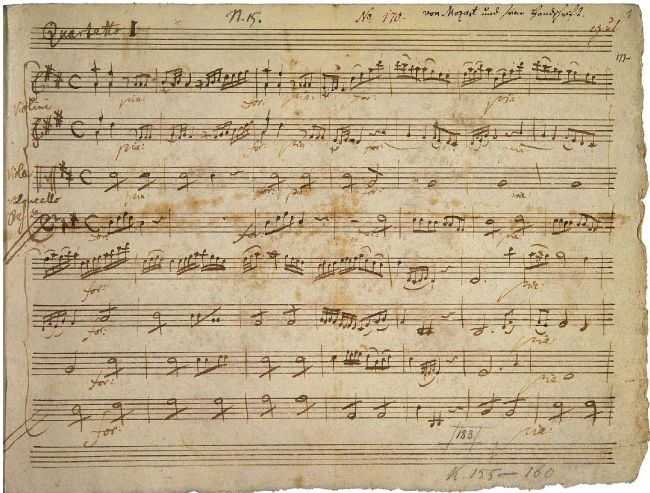 Quartetto I N. 15. No 170. von Mozart und seine Handschrift. 1
Violini pia: for: pia: for: pia:
pia: for: pia: for: pia
Viola pia: for: pia for: pia
Violoncello
for: pia:
for: pia:
for: pia:
for: pia:
183
K. 155–160